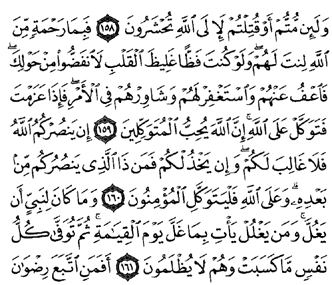 وَلَئِن مُّتُّمْ أَوْ قُتِلْتُمْ لَإِلَى اللَّهِ تُحْشَرُونَ ١٥٨ فَبِمَا رَحْمَةٍ مِّنَ
اللَّهِ لِنتَ لَهُمْ ۖ وَلَوْ كُنتَ فَظًّا غَلِيظَ الْقَلْبِ لَانفَضُّوا مِنْ حَوْلِكَ ۖ
فَاعْفُ عَنْهُمْ وَاسْتَغْفِرْ لَهُمْ وَشَاوِرْهُمْ فِي الْأَمْرِ ۖ فَإِذَا عَزَمْتَ
فَتَوَكَّلْ عَلَى اللَّهِ ۚ إِنَّ اللَّهَ يُحِبُّ الْمُتَوَكِّلِينَ ١٥٩ إِن يَنصُرْكُمُ اللَّهُ
فَلَا غَالِبَ لَكُمْ ۖ وَإِن يَخْذُلْكُمْ فَمَن ذَا الَّذِي يَنصُرُكُم مِّن
بَعْدِهِ ۗ وَعَلَى اللَّهِ فَلْيَتَوَكَّلِ الْمُؤْمِنُونَ ١٦٠ وَمَا كَانَ لِنَبِيٍّ أَن
يَغُلَّ ۚ وَمَن يَغْلُلْ يَأْتِ بِمَا غَلَّ يَوْمَ الْقِيَامَةِ ۚ ثُمَّ تُوَفَّىٰ كُلُّ
نَفْسٍ مَّا كَسَبَتْ وَهُمْ لَا يُظْلَمُونَ ١٦١ أَفَمَنِ اتَّبَعَ رِضْوَانَ